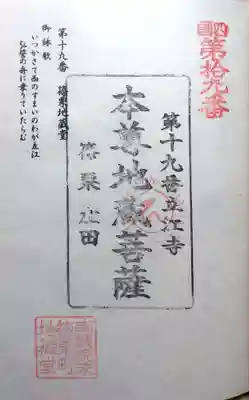 第拾九番
第十九番立江寺
本尊地蔵菩薩
篠栗
第十九番 篠栗地蔵堂
御詠歌
いつかさて西のすまいのわが立江
弘誓の舟に乗りていたらむ
地蔵堂